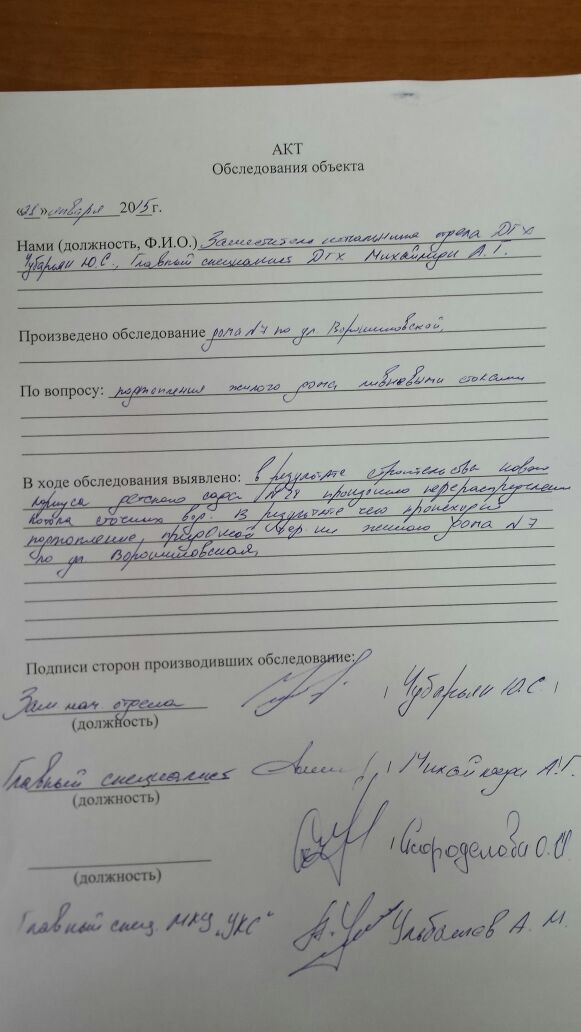 АКТ
Обследования объекта
«28» января 2015г.
Нами (должность, Ф.И.О.) Заместитель начальника отдела ДГХ
Чубарьян Ю.С., Главный специалист ДГХ А.Г.
Произведено обследование дома №7 по ул. Ворошиловской,
По вопросу: подтопления жилого дома ливневыми стоками
В ходе обследования выявлено: в результате строительства нового
корпуса детского сада №24 произошло перераспределение
потока сточных вод. В результате чего происходит
подтопление, придомовой тер-ии жилого дома №7
по ул. Ворошиловская,
Подписи сторон производивших обследование:
Зам нач. отдела Чубарьян Ю.С.
(должность)
Главный специалист А.Г.
(должность)
(должность)
Главный спец. МКУ „УКС“ А. М.